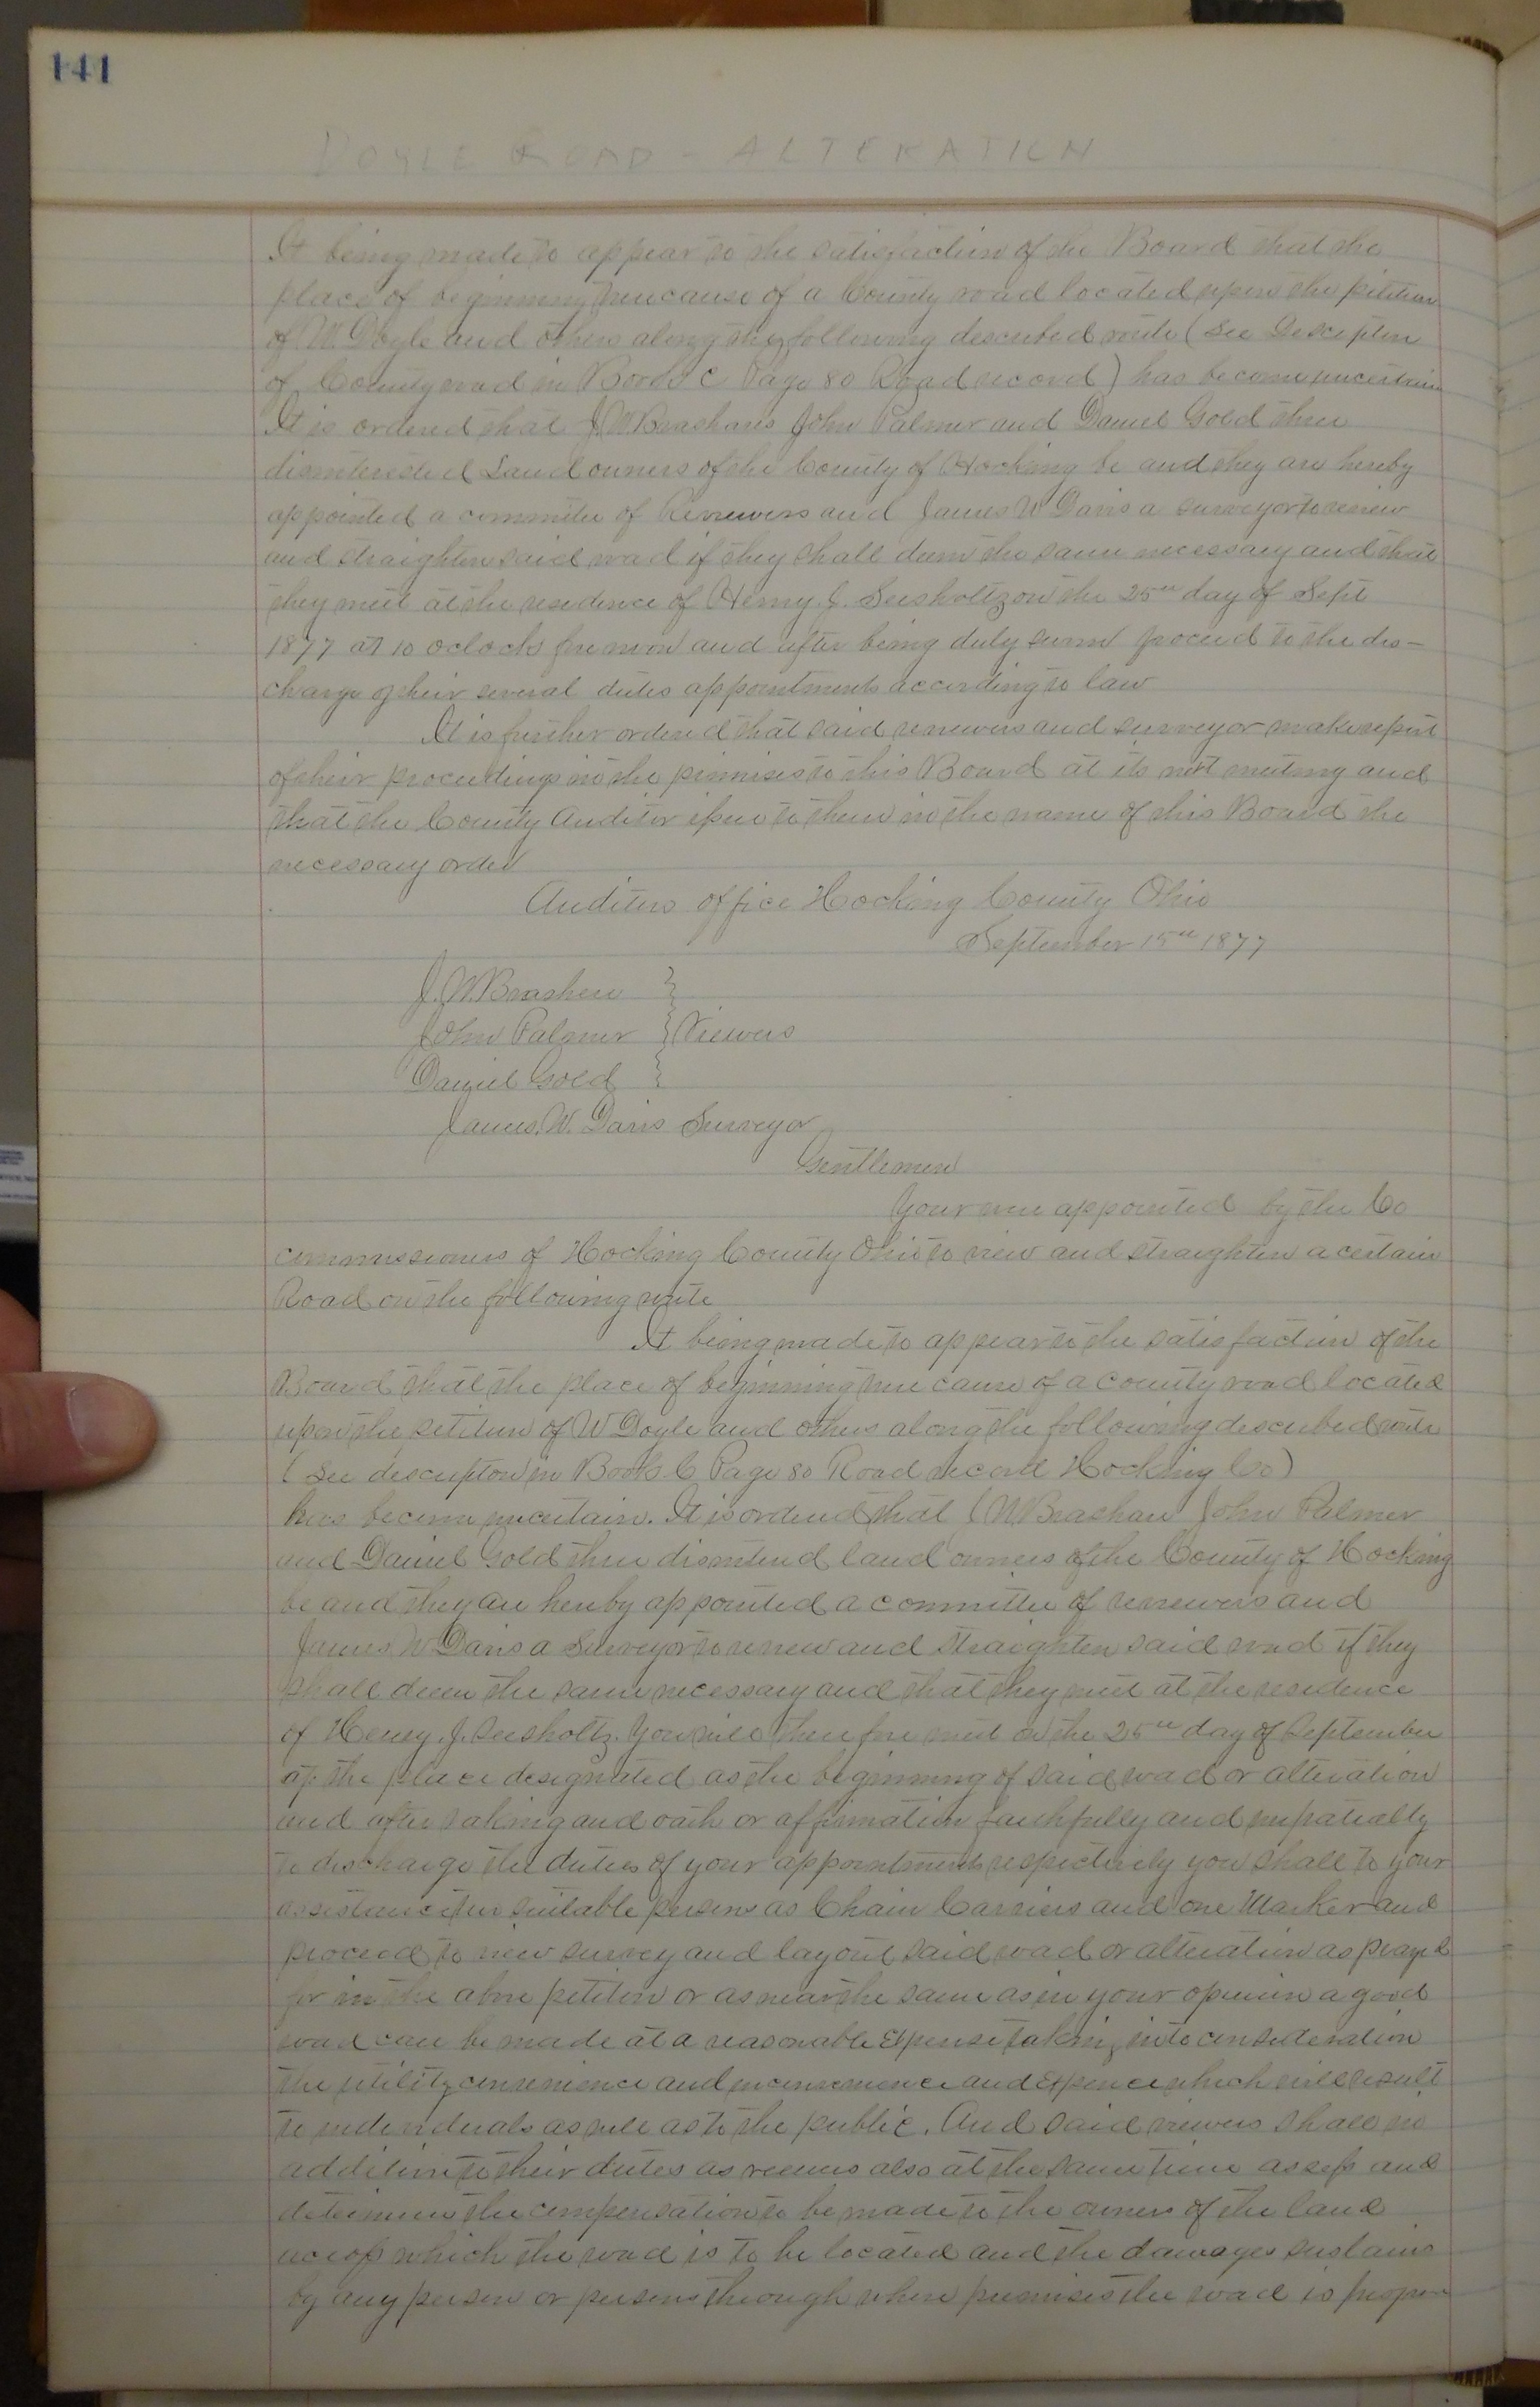 141
DOYLE ROAD - ALTERATION
It being made to appear to the satisfaction of the Board that the
place of beginning true cause of a County road located upon the petition
of W. Doyle and others along the following described route (See Description
of County road in Book C Page 80 Road record) has become uncertain
It is ordered that J. W. Brashares John Palmer and Daniel Gold three
disinterested Land owners of the County of Hocking be and they are hereby
appointed a committee of Reviewers and James W Davis a surveyor to review
and straighten said road if they shall deem the same necessary and that
they meet at the residence of Henry. J. Seesholtz on the 25th day of Sept
1877 at 10 oclock forenoon and after being duly sworn proceed to the dis-
charge of their several duties appointments according to law
It is further ordered that said reviewers and surveyor make report
of their proceedings in the premises to this Board at its next meeting and
that the County Auditor issue to them in the name of this Board the
necessary order
Auditors office Hocking County Ohio
September 15th 1877
J. W. Brashere }
John Palmer } Viewers
Daniel Gold }
James. W. Davis Surveyor
Gentlemen
Your were appointed by the Co
commissioners of Hocking County Ohio to view and straighten a certain
Road on the following route
It being made to appear to the satisfaction of the
Board that the place of beginning true cause of a county road located
upon the petition of W Doyle and others along the following described route
(See description in Book C Page 80 Road record Hocking Co)
has become uncertain. It is ordered that J W Brashare John Palmer
and Daniel Gold three disintered land owners of the County of Hocking
be and they are hereby appointed a committee of reviewers and
James W Davis a Surveyor to review and straighten said road if they
shall deem the same necessary and that they meet at the residence
of Henry. J. Seesholtz. You will therefore meet on the 25th day of September
at the place designated as the beginning of said road or alteration
and after taking and oath or affirmation faithfully and impatially
to discharge the duties of your appointments respectively you shall to your
assistance two suitable persons as Chain Carriers and one Marker and
proceed to view survey and layout said road or alteration as prayed
for in the above petition or as near the same as in your opinion a good
road can be made at a reasonable Expense taking into consideration
the utility convenience and inconvenience and Expence which will result
to individuals as well as to the public. And said viewers shall in
addition to their duties as viewers also at the same time assess and
determine the compensation to be made to the owners of the land
across which the road is to be located and the damages sustains
by any person or persons through whose premises the road is propose